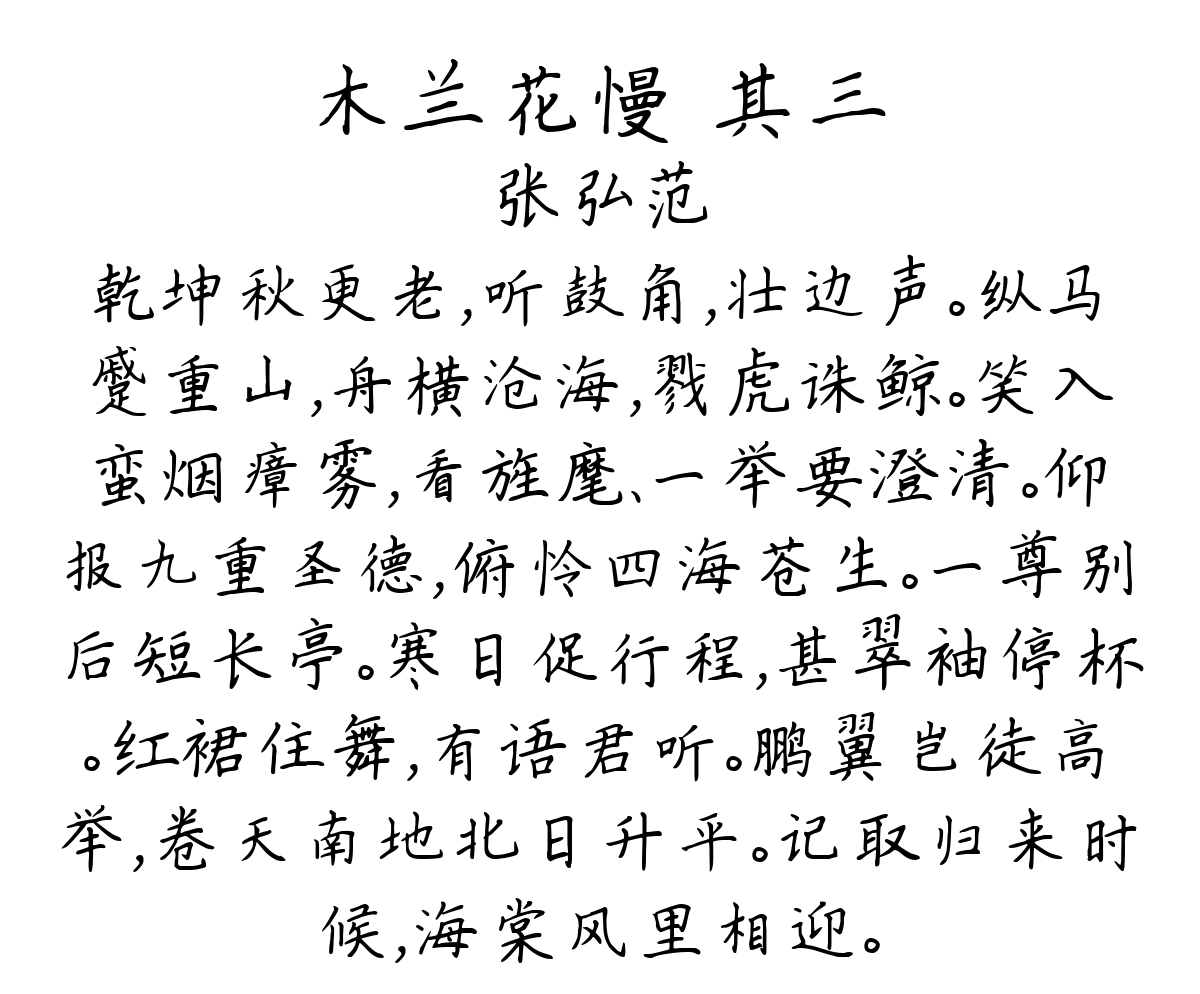 木兰花慢 其三
张弘范
乾坤秋更老,听鼓角,壮边声。纵马
蹙重山,舟横沧海,戮虎诛鲸。笑入
蛮烟瘴雾,看旌麾、一举要澄清。仰
报九重圣德,俯怜四海苍生。一尊别
后短长亭。寒日促行程,甚翠袖停杯
。红裙住舞,有语君听。鹏翼岂徒高
举,卷天南地北日升平。记取归来时
候,海棠风里相迎。